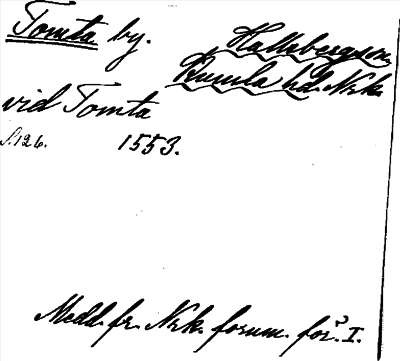 Tomta by.
Hallsbergs sn,
Kumla hd. Nrk.
vid Tomta
S. 126. 1553.
Medd. fr. Nrk. fornm. för. I.